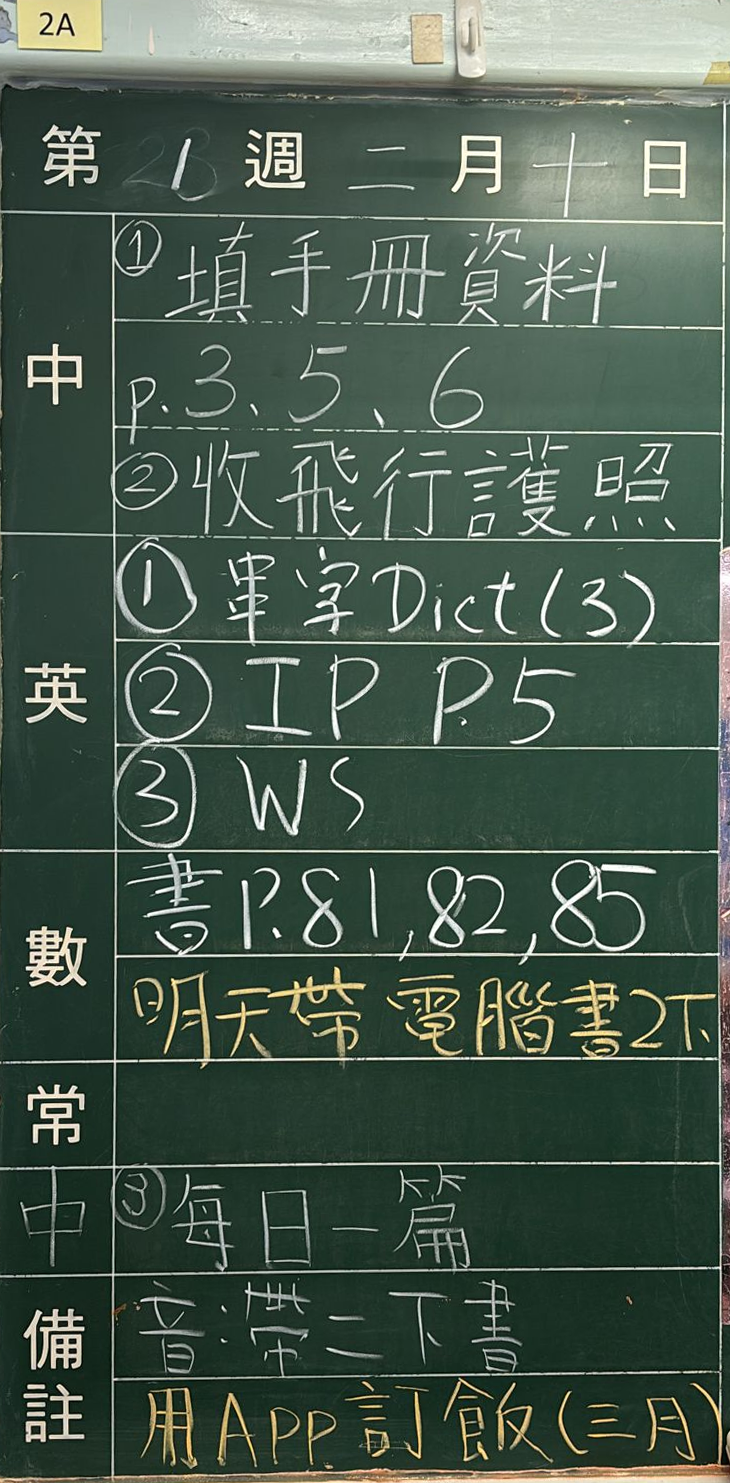 2A
第 1 週 二 月 十 日
中
① 填手冊資料
p.3、5、6
② 收飛行護照
英
① 單字Dict(3)
② IP P.5
③ WS
數
書P.81,82,85
明天帶電腦書2下
常
中
③ 每日一篇
備註
音:帶二下書
用APP訂飯(三月)